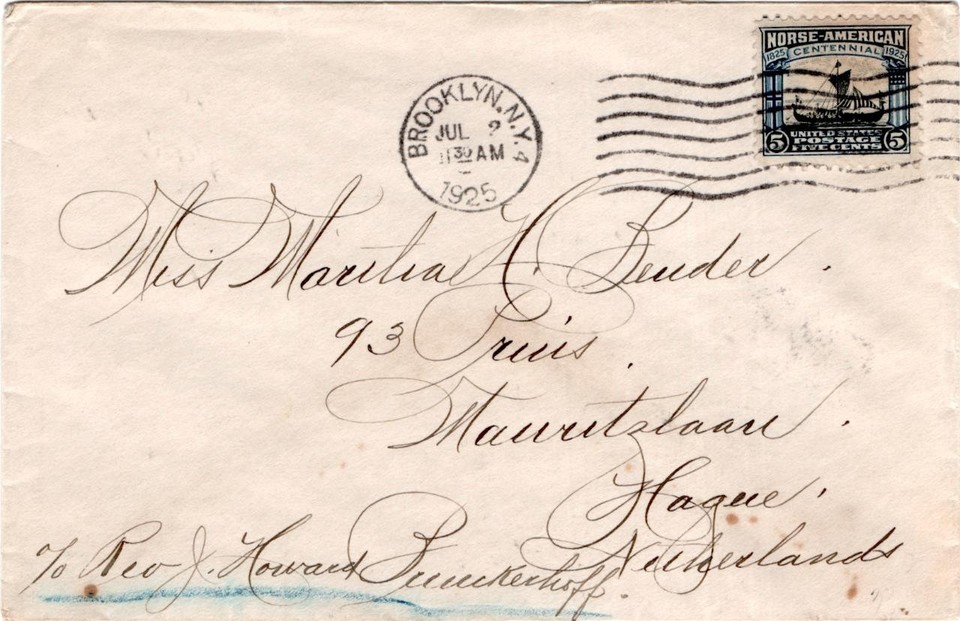 NORSE-AMERICAN
CENTENNIAL
1825 1925
UNITED STATES
POSTAGE
5 FIVE CENTS 5
BROOKLYN, N.Y. 4
JUL 2
30 AM
1925
Miss Martha H. Bender.
93 Prins.
Mauritzlaan.
Hague.
Netherlands
c/o Rev J. Howard Brinckerhoff.